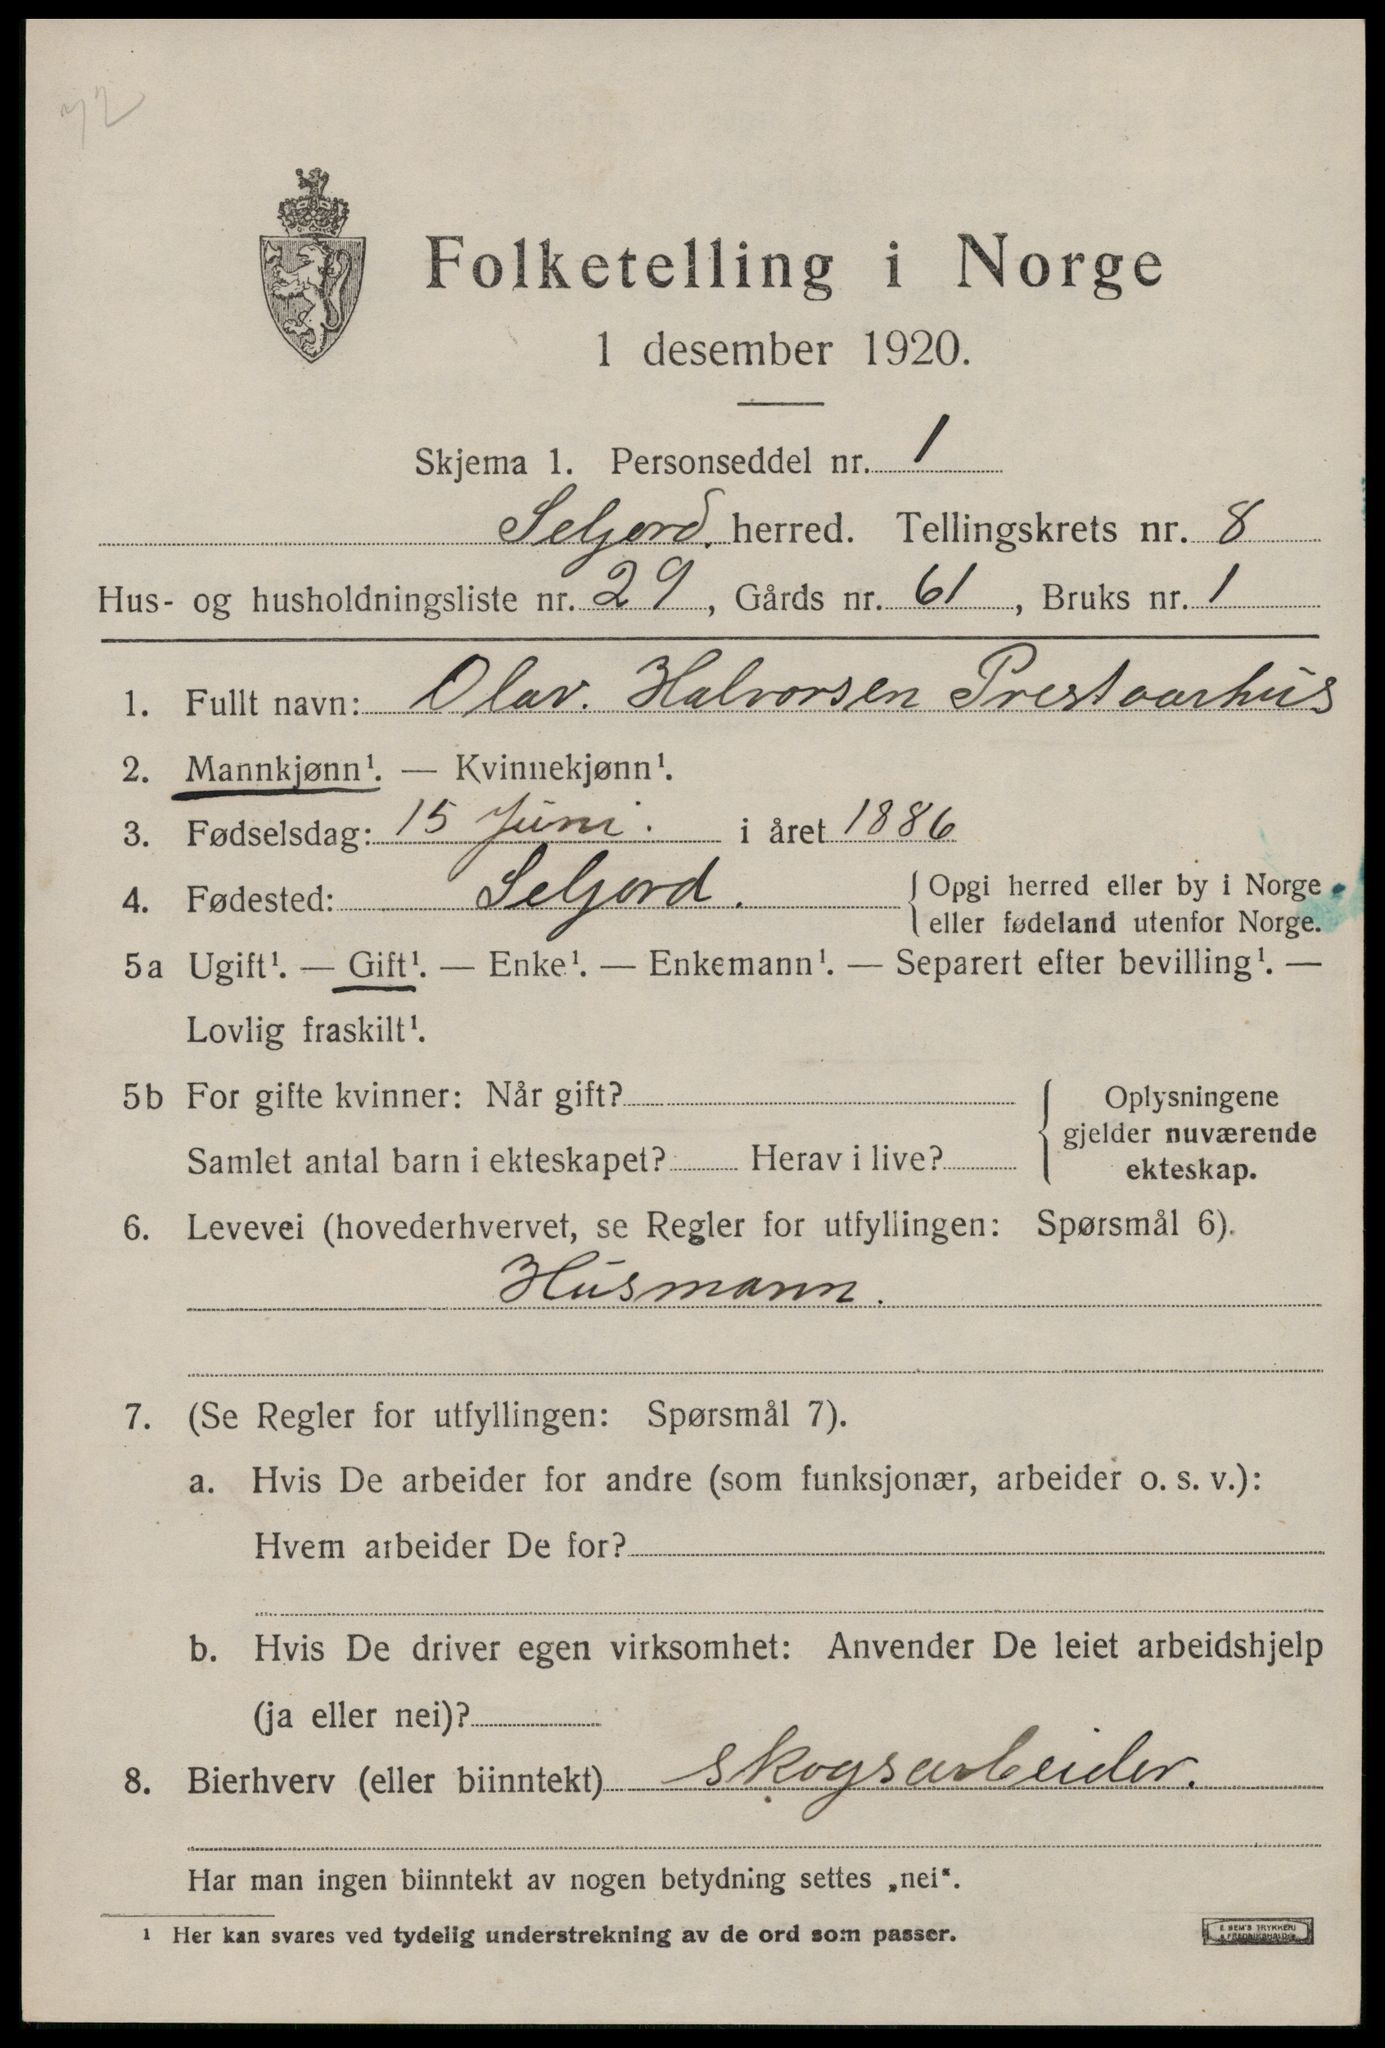 72
Folketelling i Norge
1 desember 1920.
Skjema 1. Personseddel nr. 1
Seljord. herred. Tellingskrets nr. 8
Hus- og husholdningsliste nr. 29, Gårds nr. 61, Bruks nr. 1
1. Fullt navn: Olav. Halvorsen Prestaarhus
2. Mannkjønn¹. — Kvinnekjønn¹.
3. Fødselsdag: 15 Juni. i året 1886
4. Fødested: Seljord. { Opgi herred eller by i Norge
eller fødeland utenfor Norge.
5a Ugift¹. — Gift¹. — Enke¹. — Enkemann¹. — Separert efter bevilling¹. —
Lovlig fraskilt¹.
5b For gifte kvinner: Når gift? { Oplysningene
gjelder nuværende
Samlet antal barn i ekteskapet? Herav i live? ekteskap.
6. Levevei (hovederhvervet, se Regler for utfyllingen: Spørsmål 6).
Husmann.
7. (Se Regler for utfyllingen: Spørsmål 7).
a. Hvis De arbeider for andre (som funksjonær, arbeider o. s. v.):
Hvem arbeider De for?
b. Hvis De driver egen virksomhet: Anvender De leiet arbeidshjelp
(ja eller nei)?
8. Bierhverv (eller biinntekt) skogsarbeider.
Har man ingen biinntekt av nogen betydning settes „nei“.
¹ Her kan svares ved tydelig understrekning av de ord som passer.
E. SEM'S TRYKKERI
FREDRIKSHALD